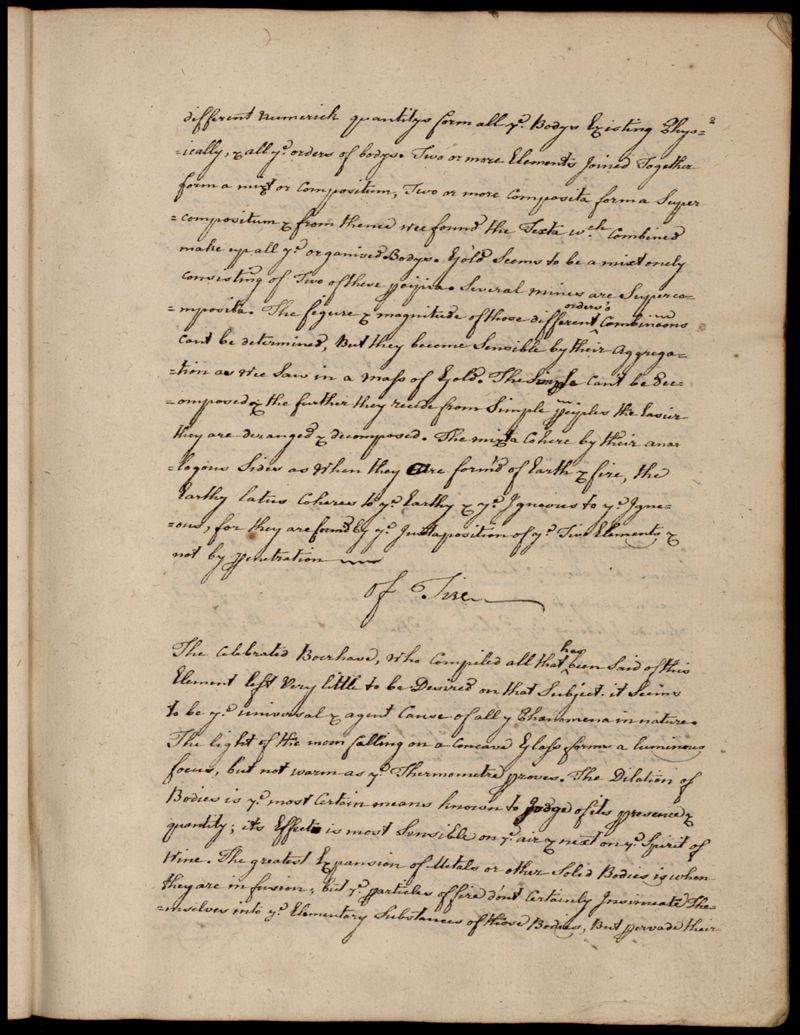 different numerick quantitys form all ye. Bodys Existing Phys=
=ically, & all ye. orders of bodys. Two or more Elements Joined Together
form a mixt or compositum, Two or more composita form a Super
=compositum & from thence wee found the Texta wch. Combined
make up all ye. organised Bodys. Gold Seems to be a mixt onely
consisting of Two of these ppijia. Several mines are Superco=
=mposita. The figure & magnitude of those different orders's Combinõons
cant be determined, But they become Sensible by their Aggrega=
=tion as wee Saw in a mass of Gold. The Simple cant be Dec=
=omposed & the further they recede from Simple ppiples the Easier
they are deranged & decomposed. The mixta Cohere by their ana=
=logous Sides as when they are form'd of Earth & fire, the
Earthy latus Coheres to ye. Earthy & ye. Igneous to ye. Igne=
=ous, for they are formd by ye. Juxtaposition of ye. Two Elements &
not by penetration
Of Fire
The Celebrated Boerhave, who Compiled all that has been Said of this
Element left Very little to be Desired on that Subject. it Seems
to be ye. universal & agent Cause of all y Phænamena in nature.
The light of the moon falling on a Concave Glass forms a luminous
focus, but not warm as ye. Thermometre proves. The Dilation of
Bodies is ye. most Certain means known to Judge of its presence &
quantity; its Effect is most Sensible on ye. air & next on ye. Spirit of
Wine. The greatest Expansion of Metals or other Solid Bodies is when
they are in fusion; but ye. particles of fire dont Certainly Insinuate The=
=mselves into ye. Elementary Substances of those Bodies, But pervade their